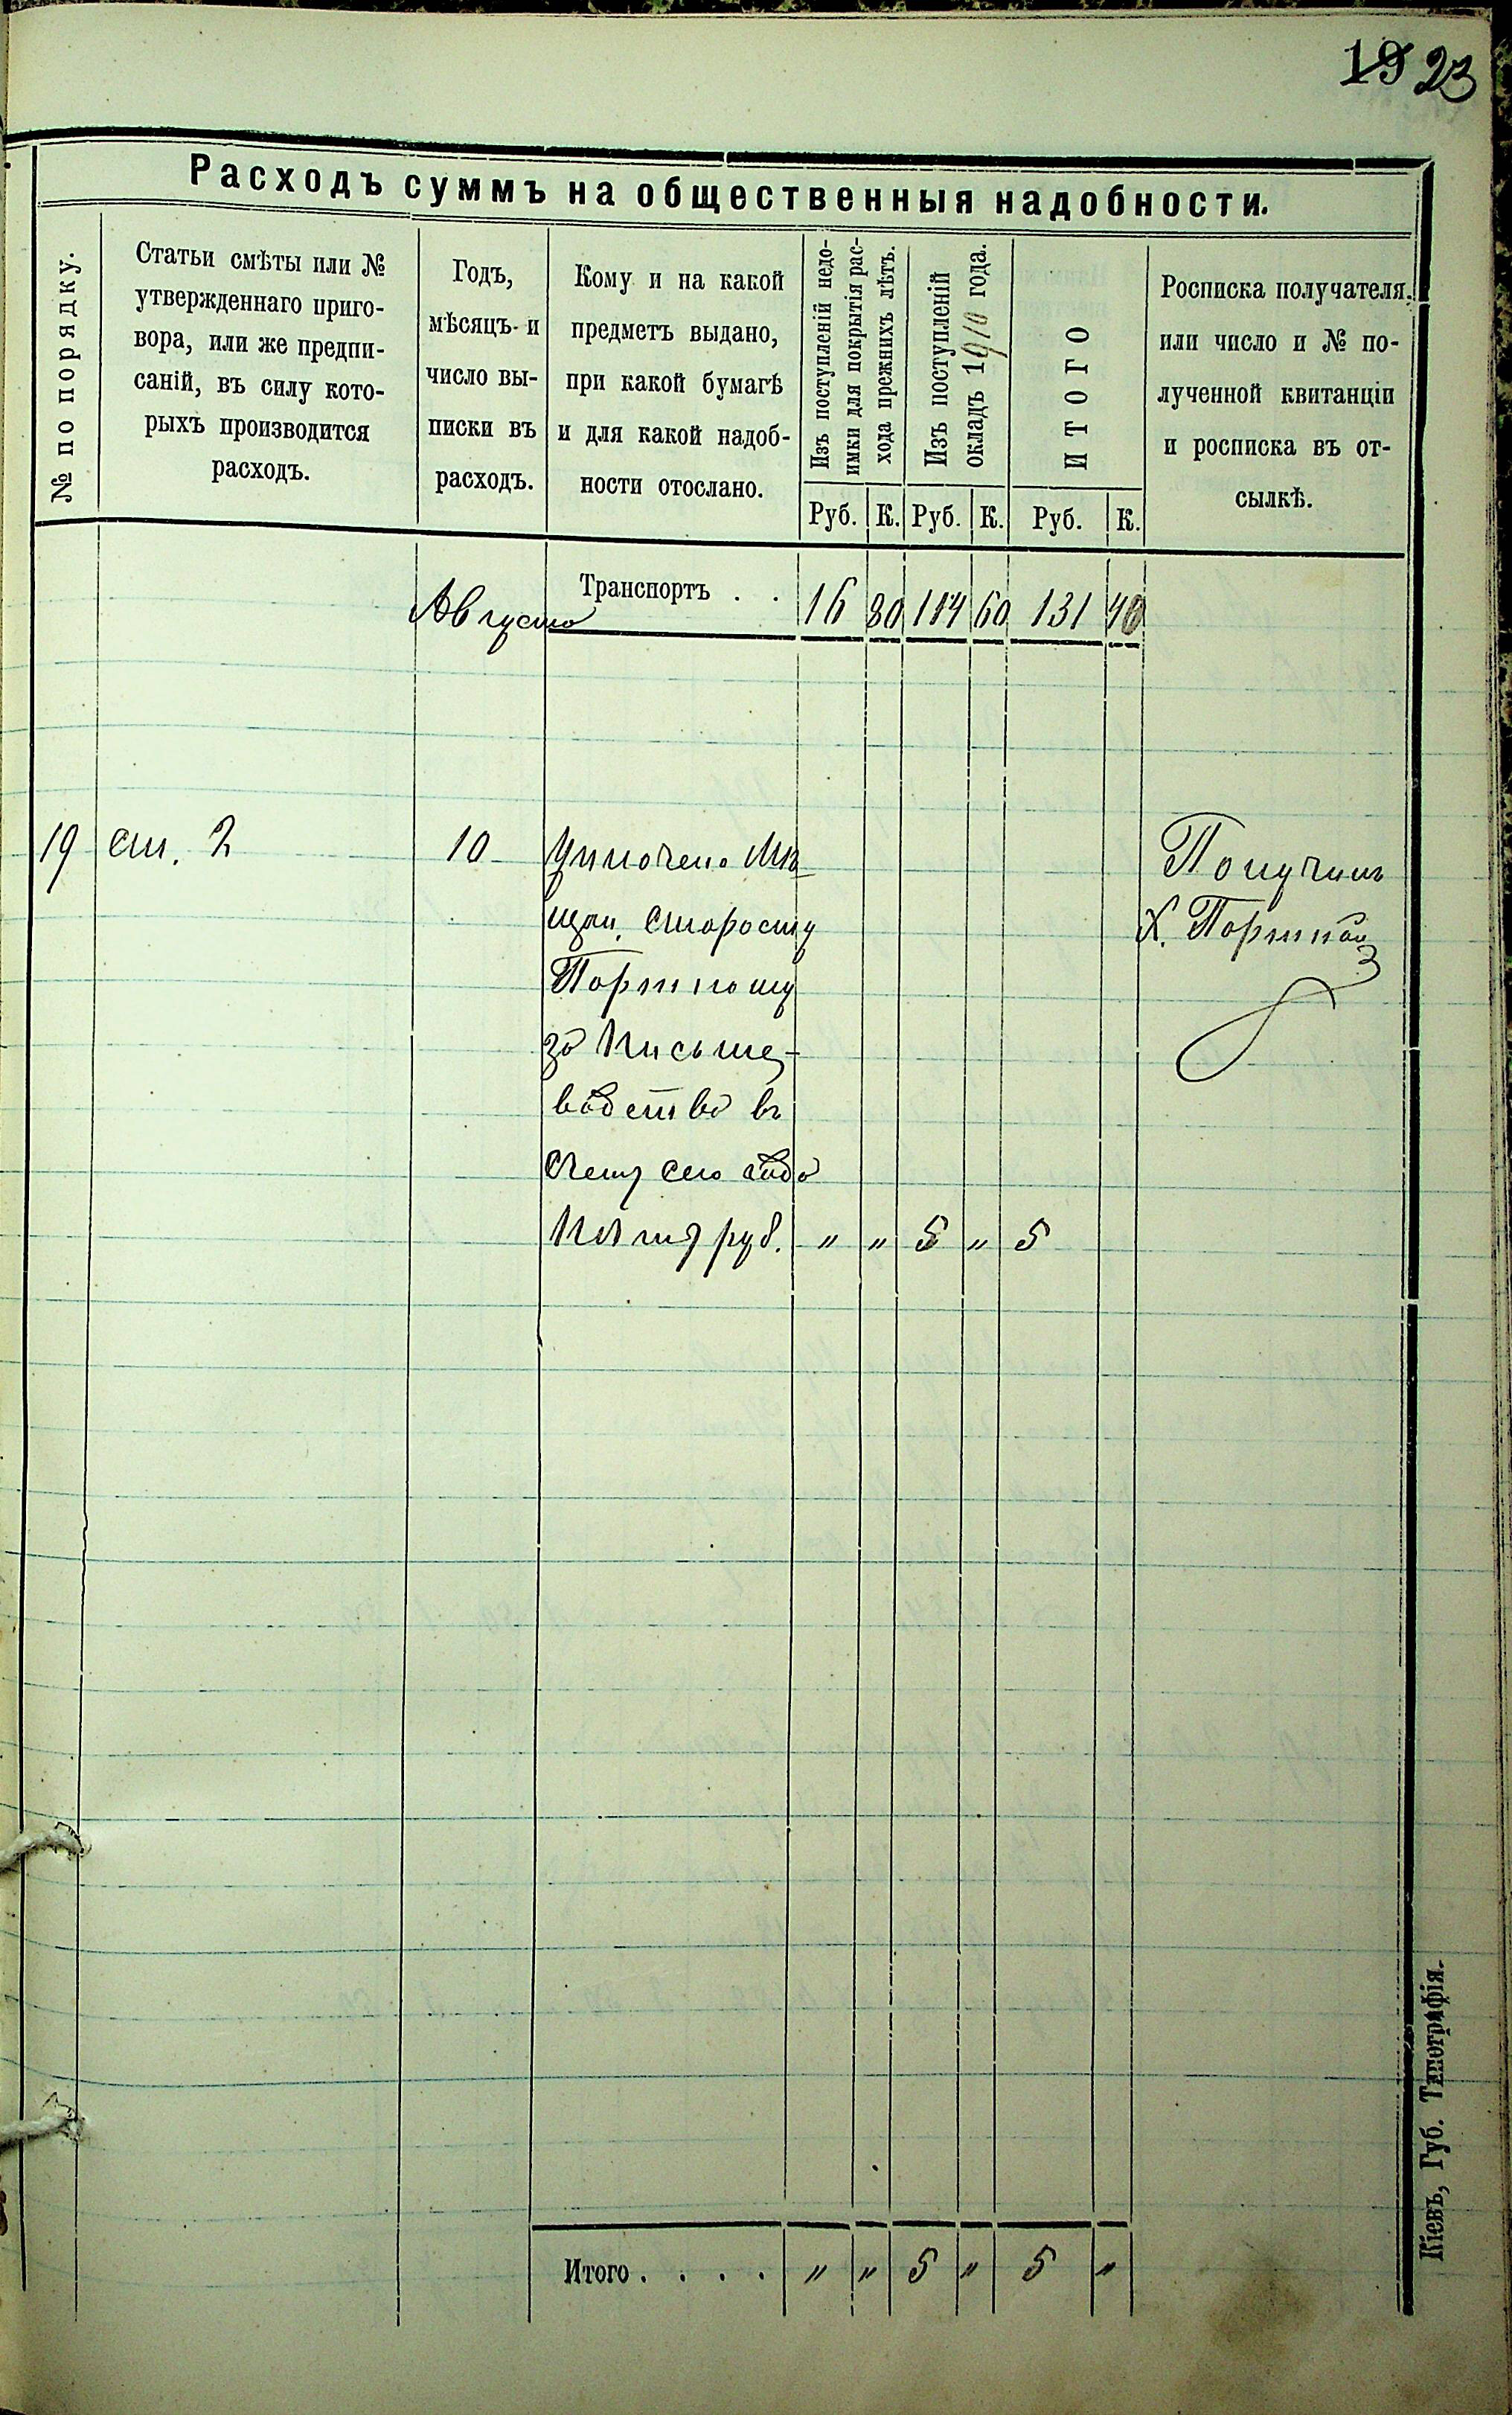 19 23
Расходъ суммъ на общественныя надобности.
№ по порядку.
Статьи смѣты или №
утвержденнаго приго-
вора, или же предпи-
саній, въ силу кото-
рыхъ производится
расходъ.
Годъ,
мѣсяцъ и
число вы-
писки въ
расходъ.
Кому и на какой
предметъ выдано,
при какой бумагѣ
и для какой надоб-
ности отослано.
Изъ поступленій недо-
имки для покрытія рас-
хода прежнихъ лѣтъ.
Изъ поступленій
окладъ 1910 года.
ИТОГО
Росписка получателя
или число и № по-
лученной квитанціи
и росписка въ от-
сылкѣ.
Руб. К. Руб. К. Руб. К.
Августа Транспортъ . . 16 80 114 60 131 40
19 ст. 2 10 Уплочено Мѣ
щан. Старосту
Портному
за Письме-
водство въ
счетъ сего года
Пять руб. " " 5 " 5
Получилъ
Х. Портной
Итого . . . . " " 5 " 5 "
Кіевъ, Губ. Типографія.